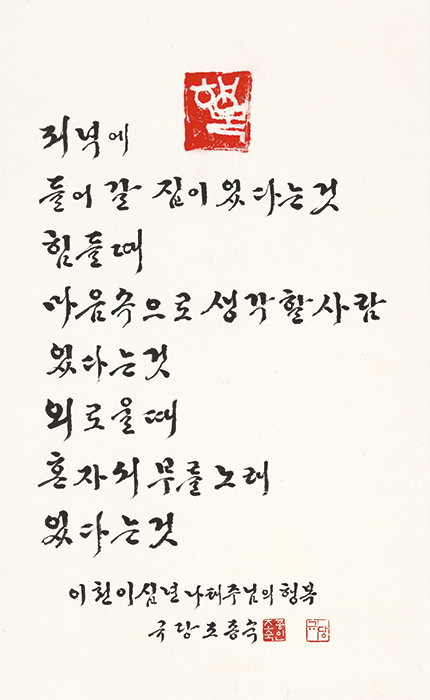 행복
저녁에
돌아 갈 집이 있다는것
힘들때
마음속으로 생각할사람
있다는것
외로울때
혼자서 부를노래
있다는것
이천이십년 나태주님의 행복
국당 조종숙